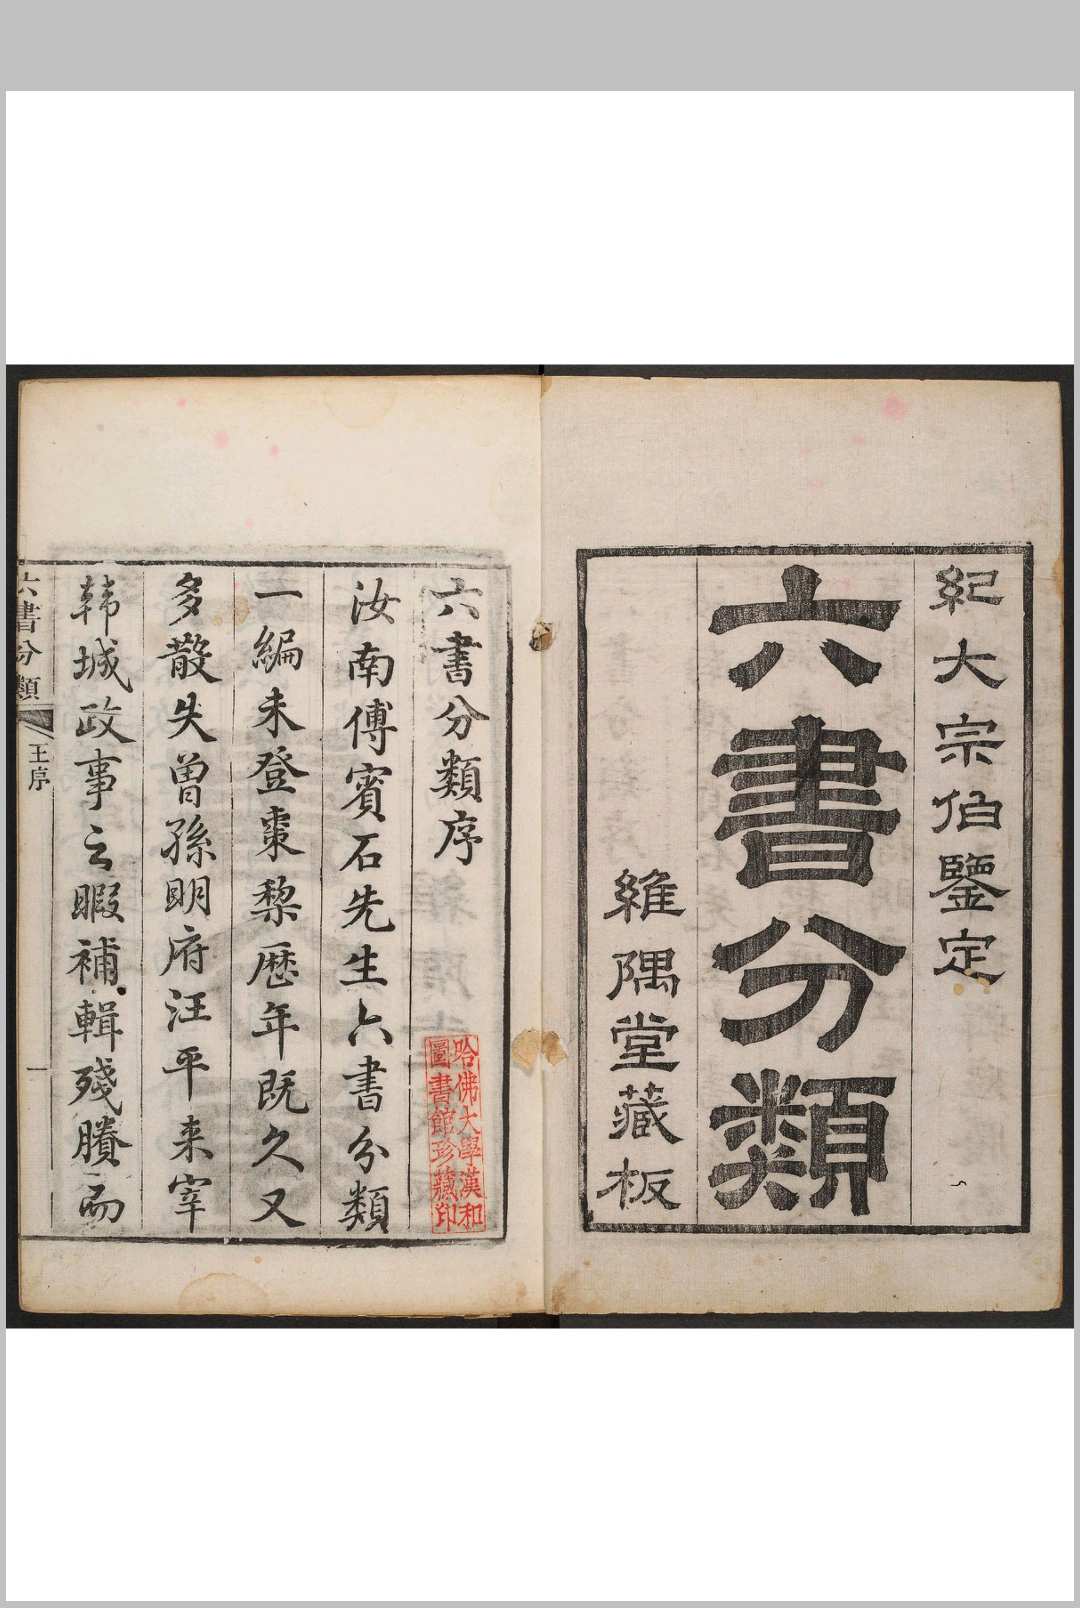 紀大宗伯鑒定
六書分類
維隅堂藏板
六書分類序
哈佛大學漢和
圖書館珍藏印
汝南傅賓石先生六書分類
一編未登棗梨歷年既久又
多散失曾孫明府汪平来宰
韩城政事之暇補輯殘賸而
六書分類
王序
一